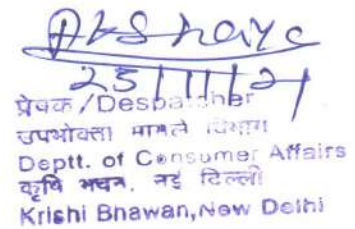 Akshaya
25/11/21
प्रेषक/Despatcher
उपभोक्ता मामले विभाग
Deptt. of Consumer Affairs
कृषि भवन, नई दिल्ली
Krishi Bhawan, New Delhi